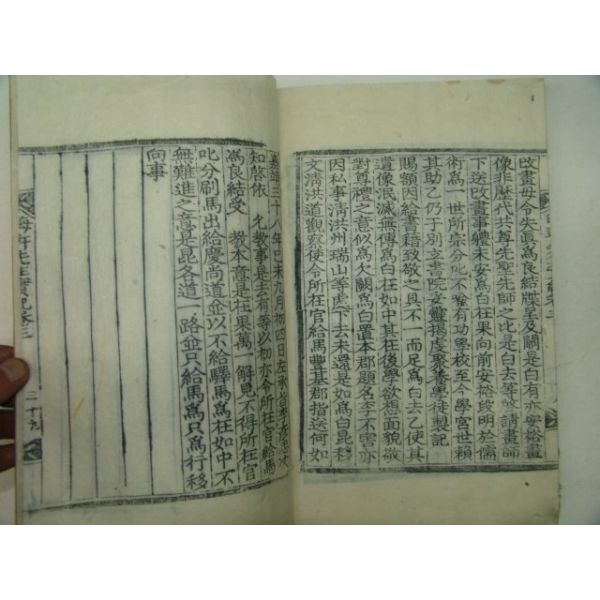 改畫毋令失眞爲良結牒呈及關是白有亦安裕畫
像非歷代共尊先聖先師之比是白去等故請畫師
下送改畫事體未安爲白在果向前安裕段明於儒
術爲一世所宗分叱不喩有功學校至今學宮世賴
其助乙仍于別立書院妥靈揭虔聚養學徒製記
賜額因給書籍致敬之具不一而足爲白去乙使其
遺像泯滅無傳爲白在如中其在後學欲想面貌敬
對尊禮之意似爲欠闕爲白置本郡題名李不害亦
因私事淸洪州瑞山等處下去未還是如爲白昆移
文淸洪道觀察使令所在官給馬豊基郡指送何如
嘉靖三十八年己未九月初四日左承旨臣李
知啓依
允敎事是去有等以初亦令所在官給馬
爲良結受
敎本意是在果萬一解見不得所在官
叱分刷馬出給慶尙道並以不給驛馬爲在如中不
無難進之意是昆各道一路並只給馬爲只爲行移
向事
晦軒先生實記卷三
二十九